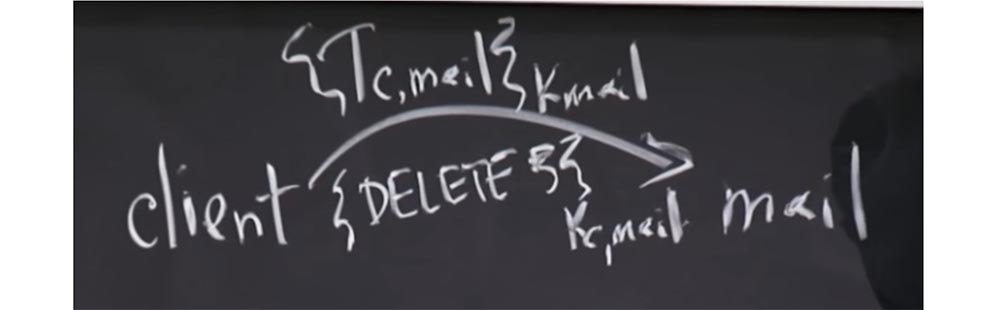 {Tc,mail}Kmail
client {DELETE 5}Kc,mail mail